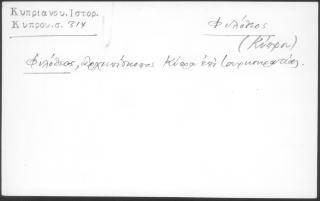 Κυπριανου.Ιστορ.
Κυπρου.σ. 314
Φιλόθεος
(Κύπρου)
Φιλόθεος, Αρχιεπίσκοπος Κύπρου ἐπὶ Τουρκοκρατίας.